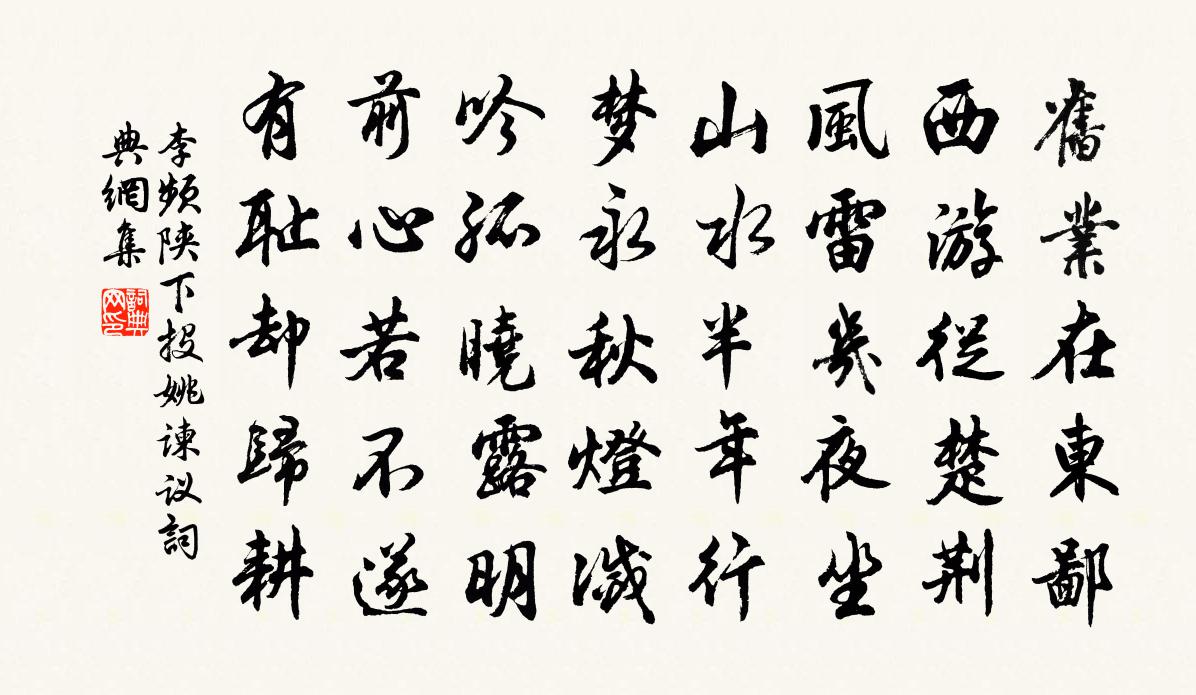 舊業在東鄙
西游從楚荆
風雷幾夜坐
山水半年行
梦永秋燈滅
吟孤曉露明
前心若不遂
有耻却歸耕
李頻陕下投姚諫议詞
典網集
詞典网印